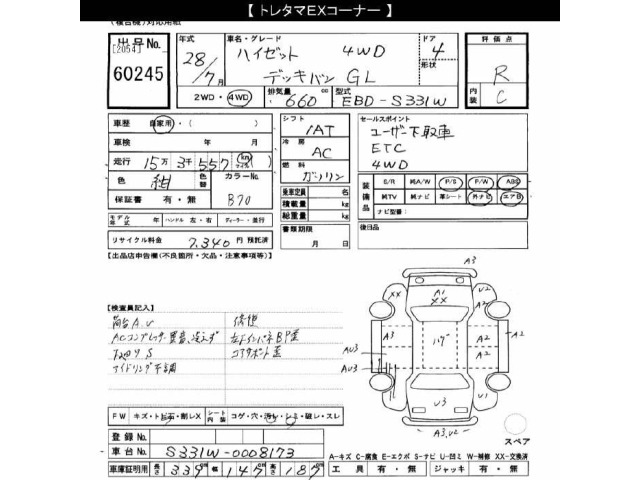 【 トレタマEXコーナー 】
(複合機)対応用紙
出品No. 年式 車名・グレード ドア 評価点
[2054] 28/7月 ハイゼット 4WD 4 R
60245 デッキバン GL 形状
2WD・4WD 排気量 660 cc 型式 EBD-S331W 内装 C
車歴 自家用・( ) シフト IAT セールスポイント
車検 年 月 冷房 AC ユーザー下取車
走行 15万 3千 557 km マイル 燃料 ガソリン ETC
色 紺 色替 カラーNo. B70 4WD
保証書 有・無 乗車定員 名
積載量 kg
総重量 kg
装備品 S/R 純A/W P/S P/W ABS
純TV 純ナビ 革シート 外ナビ エアB
ナビ型番:
モデル年式 年 ハンドル 左・右 ディーラー・並行 書類期限 月 日 後日品
リサイクル料金 7,340 円 預託済
【出品店申告欄(不良箇所・欠品・注意事項等)】
【検査員記入】
荷台A.U 修復
ACコンプレッサー異音、冷えず
下廻りS コアサポート歪
アイドリング不調
A3
XX A1 XX U2
A3 A2 A2 A2
AU3 AU3 A3
U3 U1
A3,U2
スペア
FW キズ・トビ石・割レX シート内装 コゲ・穴・汚レ・シミ・破レ・スレ
登録No.
車台No. S331W-0008173
A-キズ C-腐食 E-エクボ S-サビ U-凹ミ W-補修 XX-交換済
車庫証明用 長さ 339 cm 幅 147 cm 高さ 187 cm 工具 有・無 ジャッキ 有・無